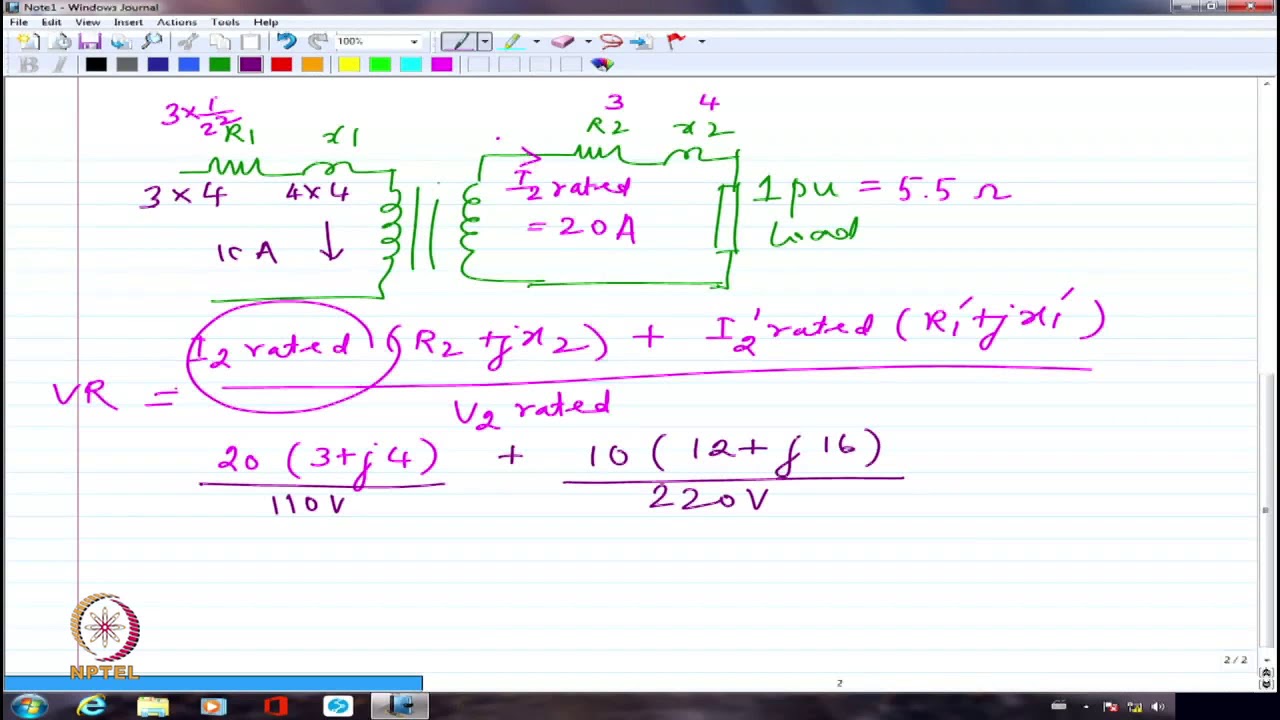 Note1 - Windows Journal
File Edit View Insert Actions Tools Help
100%
B I
3 × 1/2²
R1 x1
3 4
R2 x2
3 × 4 4 × 4
10 A
I2 rated
= 20 A
1 pu = 5.5 Ω
Load
VR = I2 rated (R2 + jx2) + I2' rated (R1' + jx1')
V2 rated
20 (3 + j4) + 10 (12 + j 16)
110V 220V
NPTEL
2 / 2
2